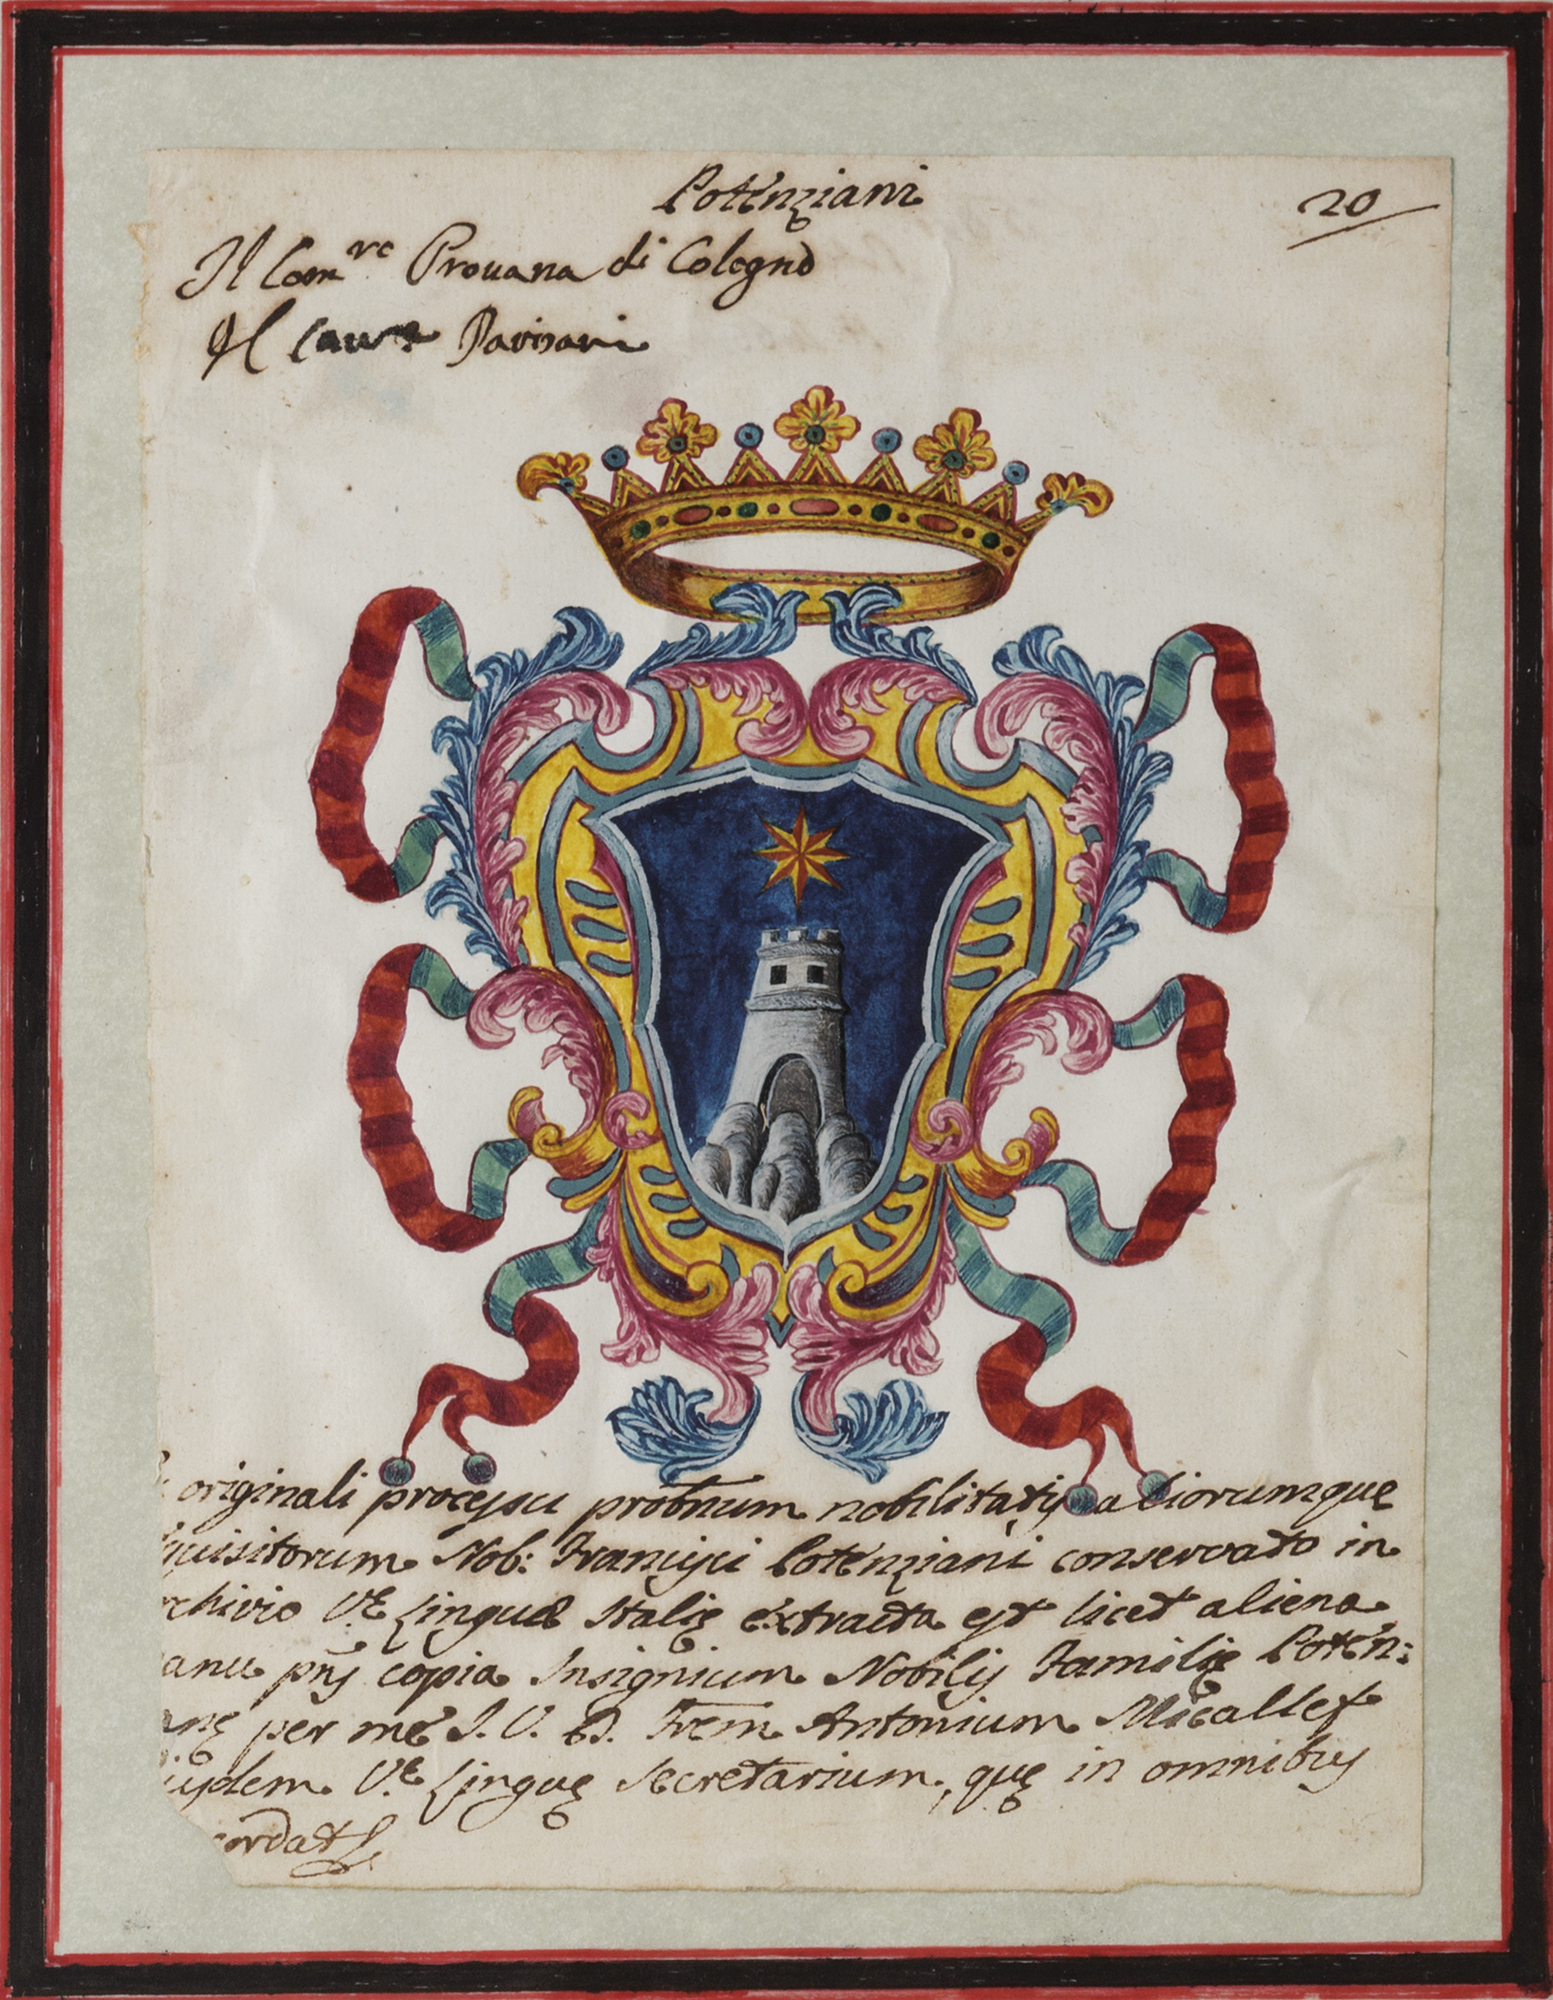 Potenziani
20
Il Com.re Prouana di Colegno
Il Cau.e Parisani
originali processu probnum nobilitatis aliorumque
quisitorum Nob: Francisci Potenziani conservato in
rchivio V.e Linguæ Italię extracta est licet aliena
anu pñs copia Insignium Nobilis Familię Poten:
anę per me I. V. D. Frem Antonium Micallef
iusdem V.e Linguę Secretarium, quę in omnibus
cordat